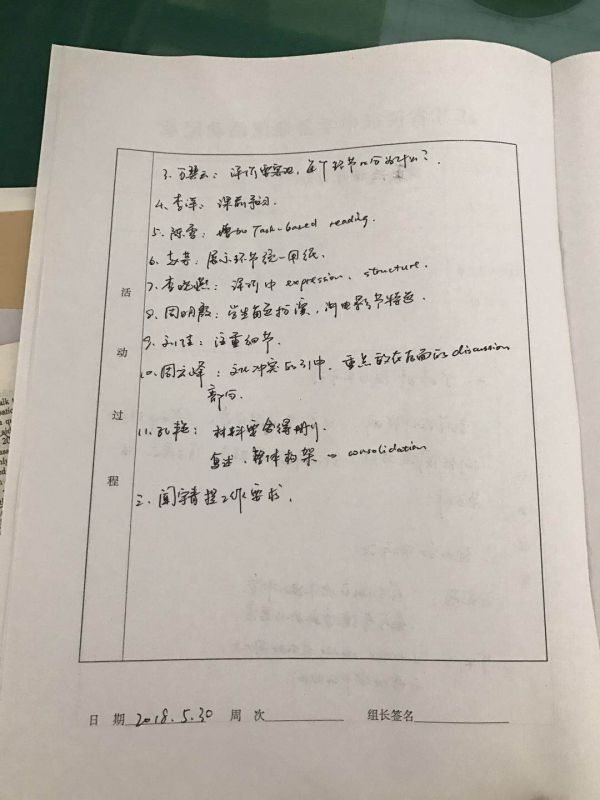 3. 评价要客观，每个环节only分为什么？
4. 李萍：课前预习.
5. 陈雪：增加 Task-based reading.
6. 展示环节统一用纸.
7. 李晓燕：评价中 expression、structure.
8. 周明霞：学生角色扮演，淘电影节特色
9. 刘佳：注重细节.
10. 周云峰：文化冲突的引申，重点放在后面的 discussion
部分.
11. 孔艳：材料要舍得删
复述、整体构架 → consolidation
三. 闻宇青提工作要求.
活
动
过
程
日 期 2018.5.30 周 次 组长签名